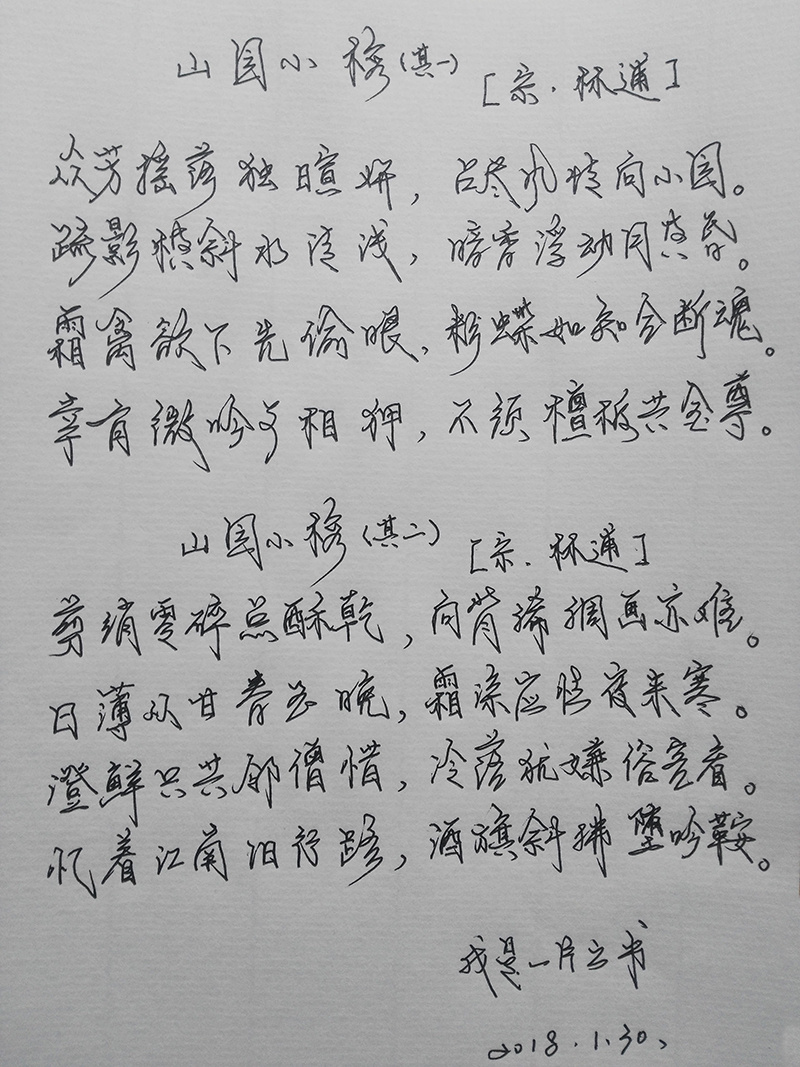 山园小梅(其一) [宋·林逋]
众芳摇落独暄妍，占尽风情向小园。
疏影横斜水清浅，暗香浮动月黄昏。
霜禽欲下先偷眼，粉蝶如知合断魂。
幸有微吟可相狎，不须檀板共金尊。
山园小梅(其二) [宋·林逋]
剪绡零碎点酥乾，向背稀稠画亦难。
日薄从甘春至晚，霜深应怯夜来寒。
澄鲜只共邻僧惜，冷落犹嫌俗客看。
忆着江南旧行路，酒旗斜拂堕吟鞍。
我是一片云书
2018.1.30、